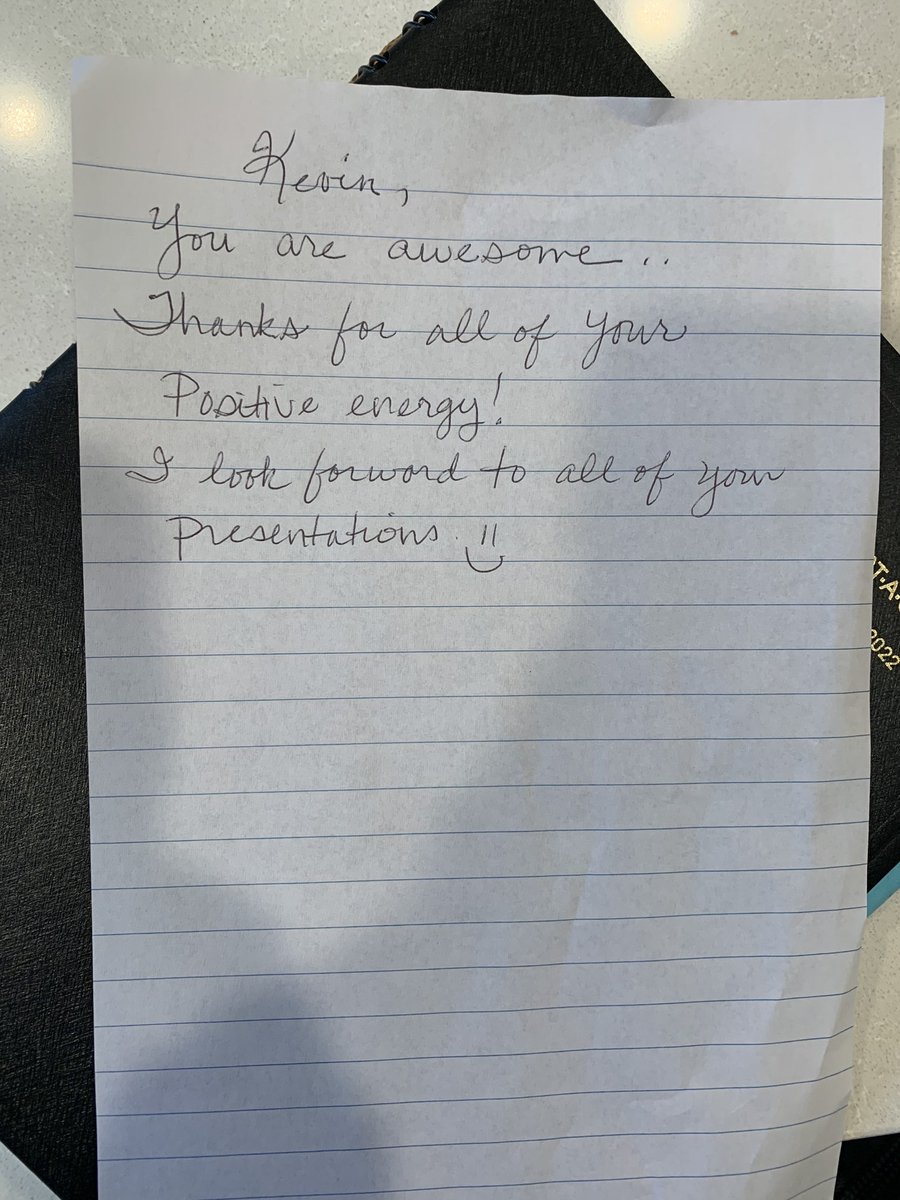 Kevin,
You are awesome..
Thanks for all of your
Positive energy!
I look forward to all of your
Presentations.
2022